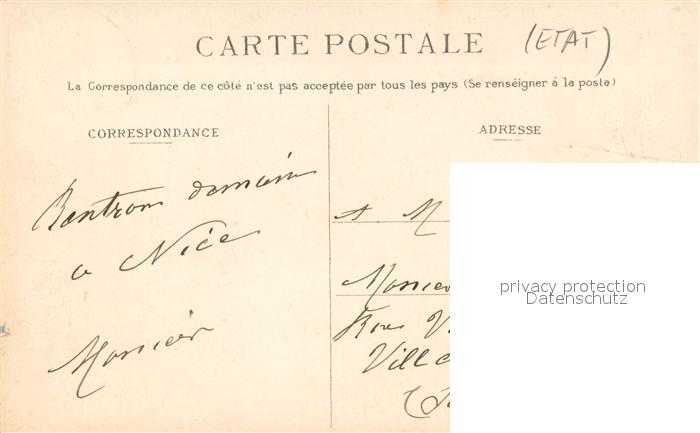 CARTE POSTALE (ETAT)
La Correspondance de ce côté n'est pas acceptée par tous les pays (Se renseigner à la poste)
CORRESPONDANCE
Rentrons demain
a Nice
Monier
ADRESSE
A M
Monsieur
Rue V
Ville
privacy protection
Datenschutz